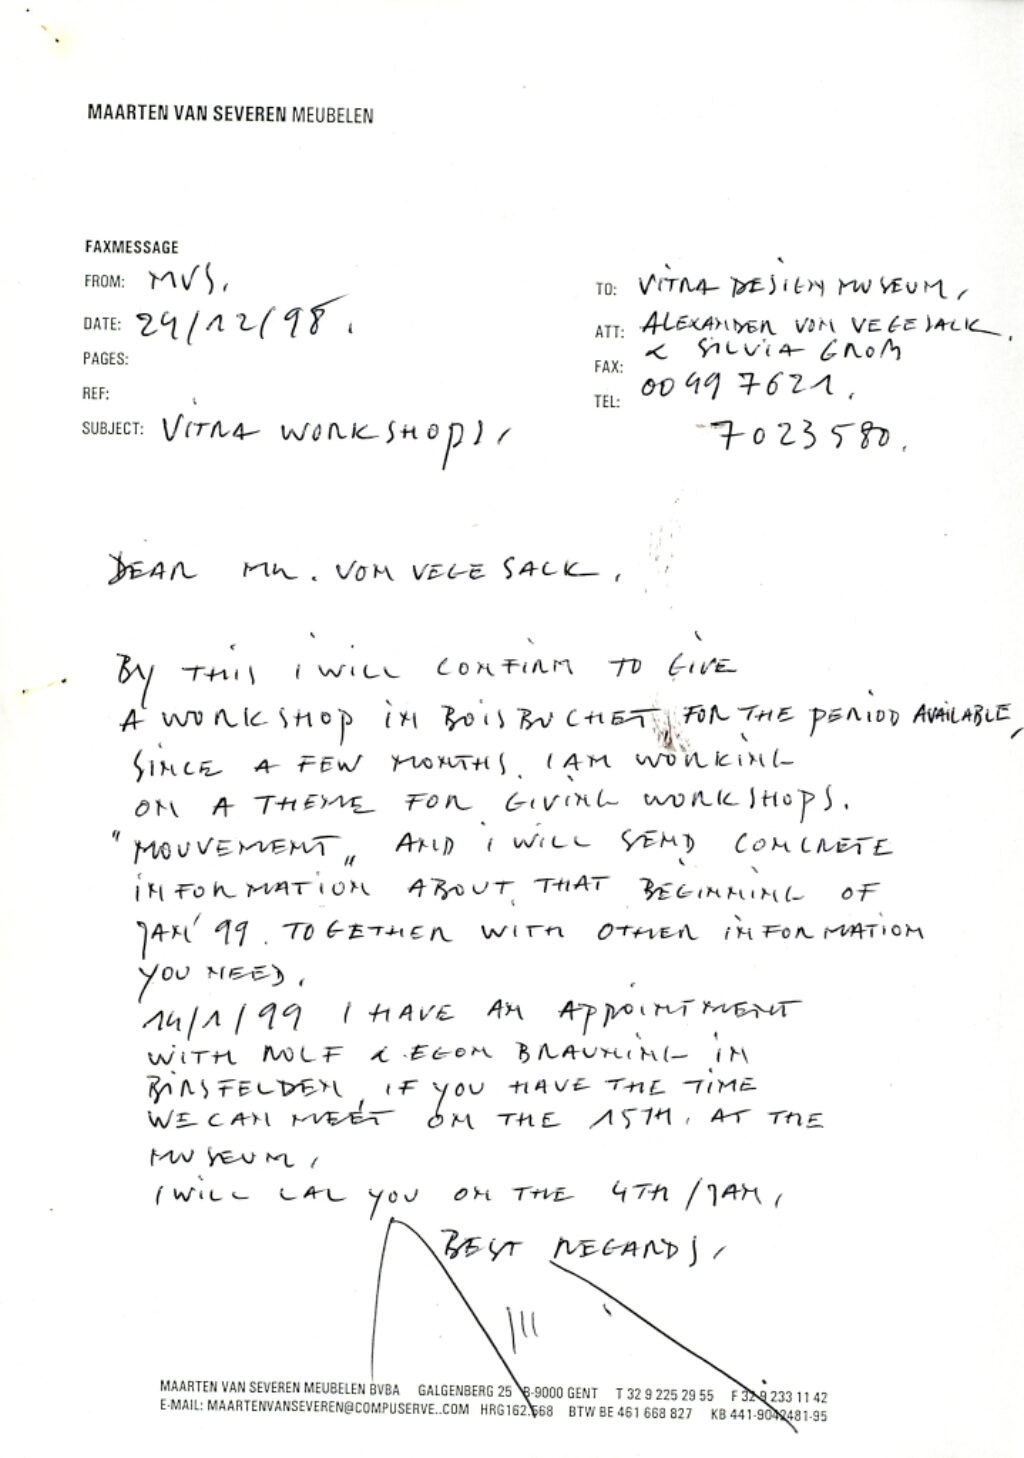 MAARTEN VAN SEVEREN MEUBELEN
FAXMESSAGE
FROM: MVS.
DATE: 24/12/98.
PAGES:
REF:
SUBJECT: VITRA WORKSHOPS,
TO: VITRA DESIGN MUSEUM,
ATT: ALEXANDER VOM VEGESACK.
& SILVIA GROM
FAX: 00 49 7621.
TEL: 7023580.
DEAR MR. VOM VEGESACK.
BY THIS I WILL CONFIRM TO GIVE
A WORKSHOP IN BOISBUCHET, FOR THE PERIOD AVAILABLE,
SINCE A FEW MONTHS, I AM WORKING
ON A THEME FOR GIVING WORKSHOPS.
"MOUVEMENT„ AND I WILL SEND CONCRETE
INFORMATION ABOUT THAT BEGINNING OF
JAN' 99. TOGETHER WITH OTHER INFORMATION
YOU NEED.
14/1/99 I HAVE AN APPOINTMENT
WITH ROLF & EGON BRAUNING IN
BIRSFELDEN, IF YOU HAVE THE TIME
WE CAN MEET ON THE 15TH. AT THE
MUSEUM,
I WILL CAL YOU ON THE 4TH/JAN,
BEST REGARDS,
MAARTEN VAN SEVEREN MEUBELEN BVBA GALGENBERG 25 B-9000 GENT T 32 9 225 29 55 F 32 9 233 11 42
E-MAIL: MAARTENVANSEVEREN@COMPUSERVE..COM HRG162.568 BTW BE 461 668 827 KB 441-9042481-95